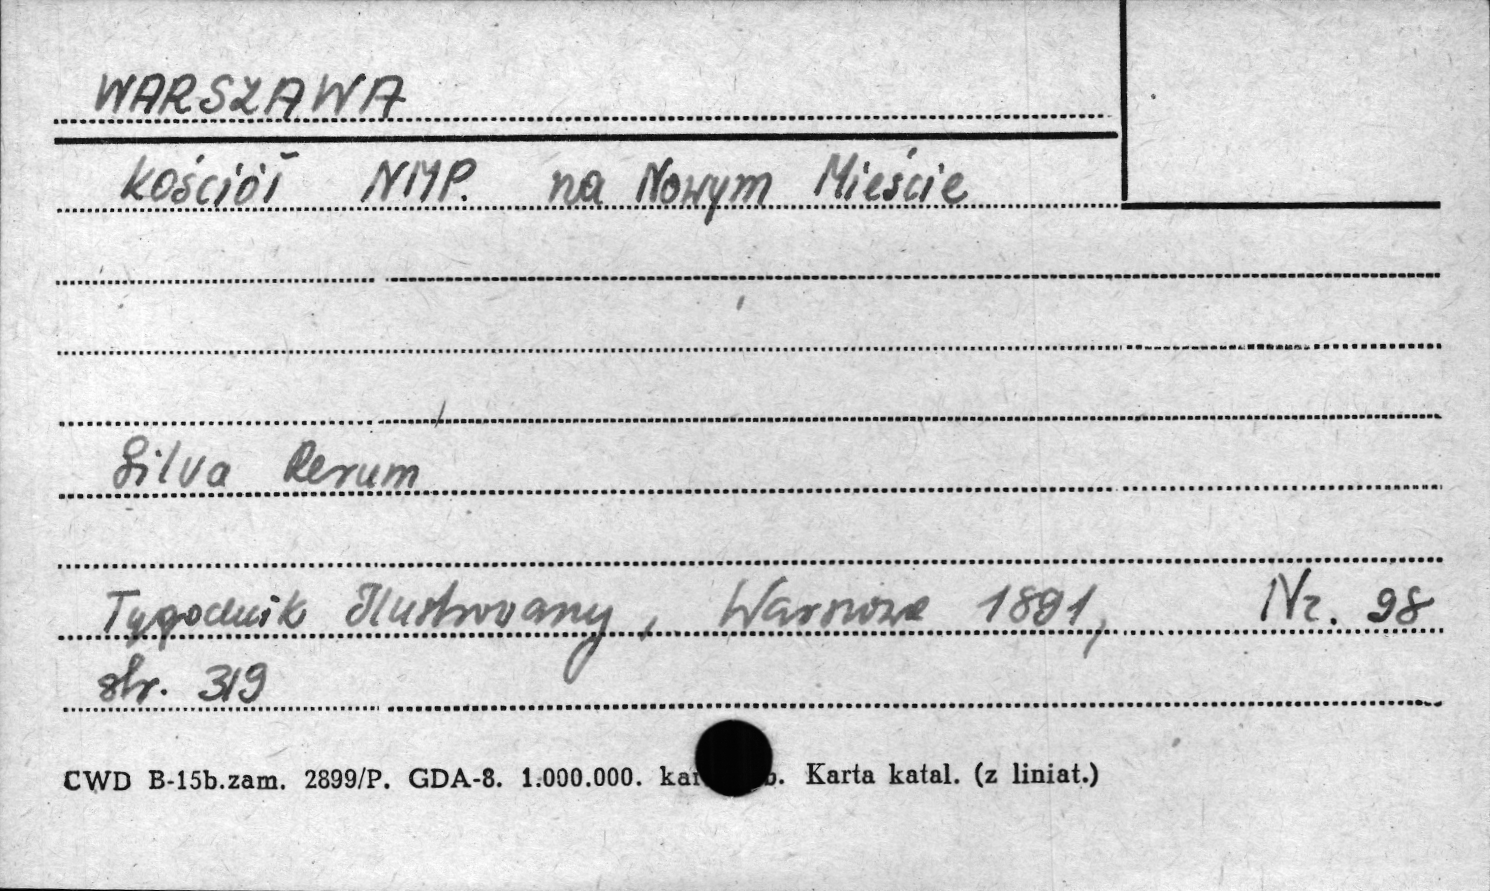 WARSZAWA
Kościół NMP. na Nowym Mieście
Silva Rerum
Tygodnik Ilustrowany, Warszawa 1891, Nr. 98
str. 319
CWD B-15b.zam. 2899/P. GDA-8. 1.000.000. Karta katal. (z liniat.)